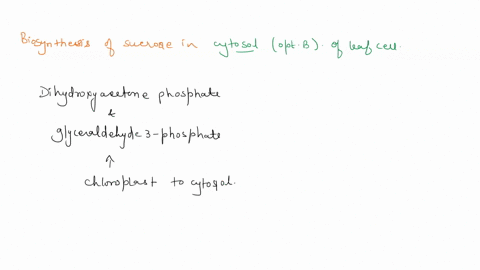 Biosynthesis of sucrose in cytosol (opt.B). of leaf cell.
Dihydroxyacetone phosphate
&
glyceraldehyde 3-phosphate
↑
chloroplast to cytosol.